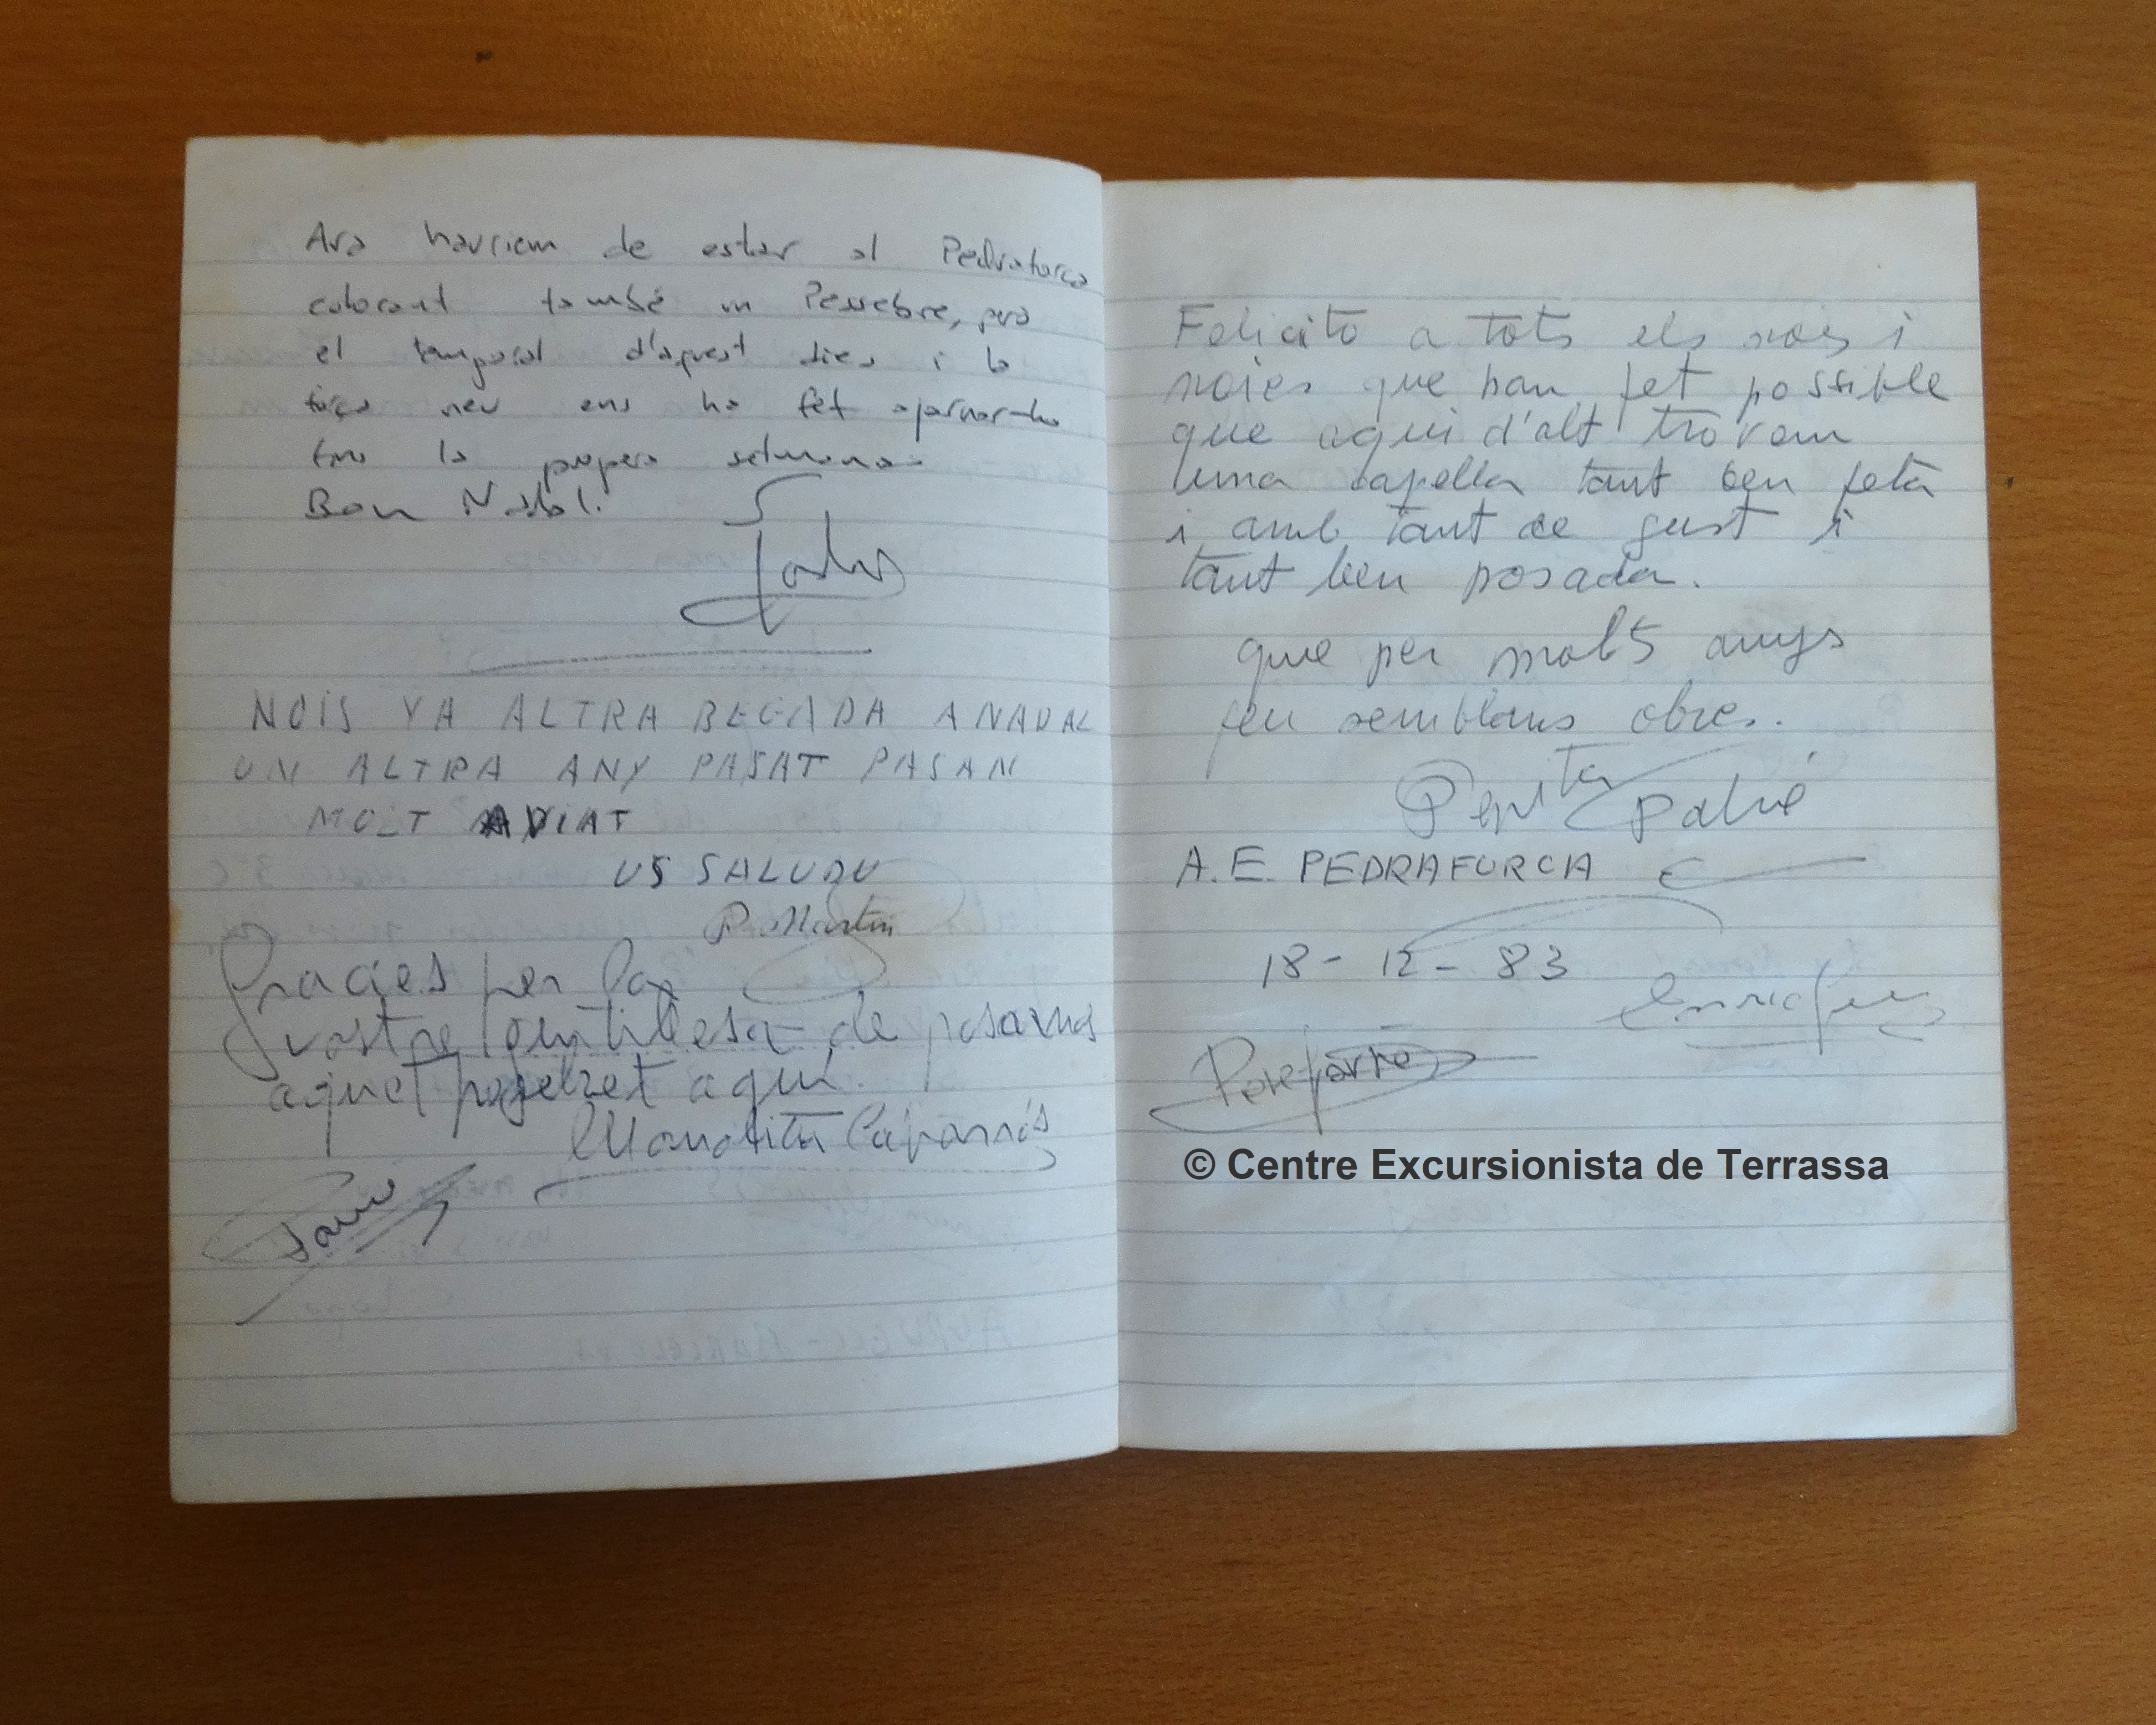 Ara hauriem de estar al Pedraforca
colocant també un Pessebre, però
el temporal d'aquest dies i la
força neu ens ha fet ajornar-ho
fins la propera setmana.
Bon Nadal.
NOIS YA ALTRA BEGADA A NADAL
UN ALTRA ANY PASAT PASAN
MOLT AVIAT
US SALUDU
P. Martin
Gracies per la
vostre gentillesa de posarnos
aquet pesebret aqui.
Manolita Caparrós
Felicito a tots els nois i
noies que han fet possible
que aqui d'alt trovem
una capella tant ben feta
i amb tant de gust i
tant ben posada.
que per molts anys
feu semblans obres.
Pepita
A.E. PEDRAFORCA
18-12-83
© Centre Excursionista de Terrassa